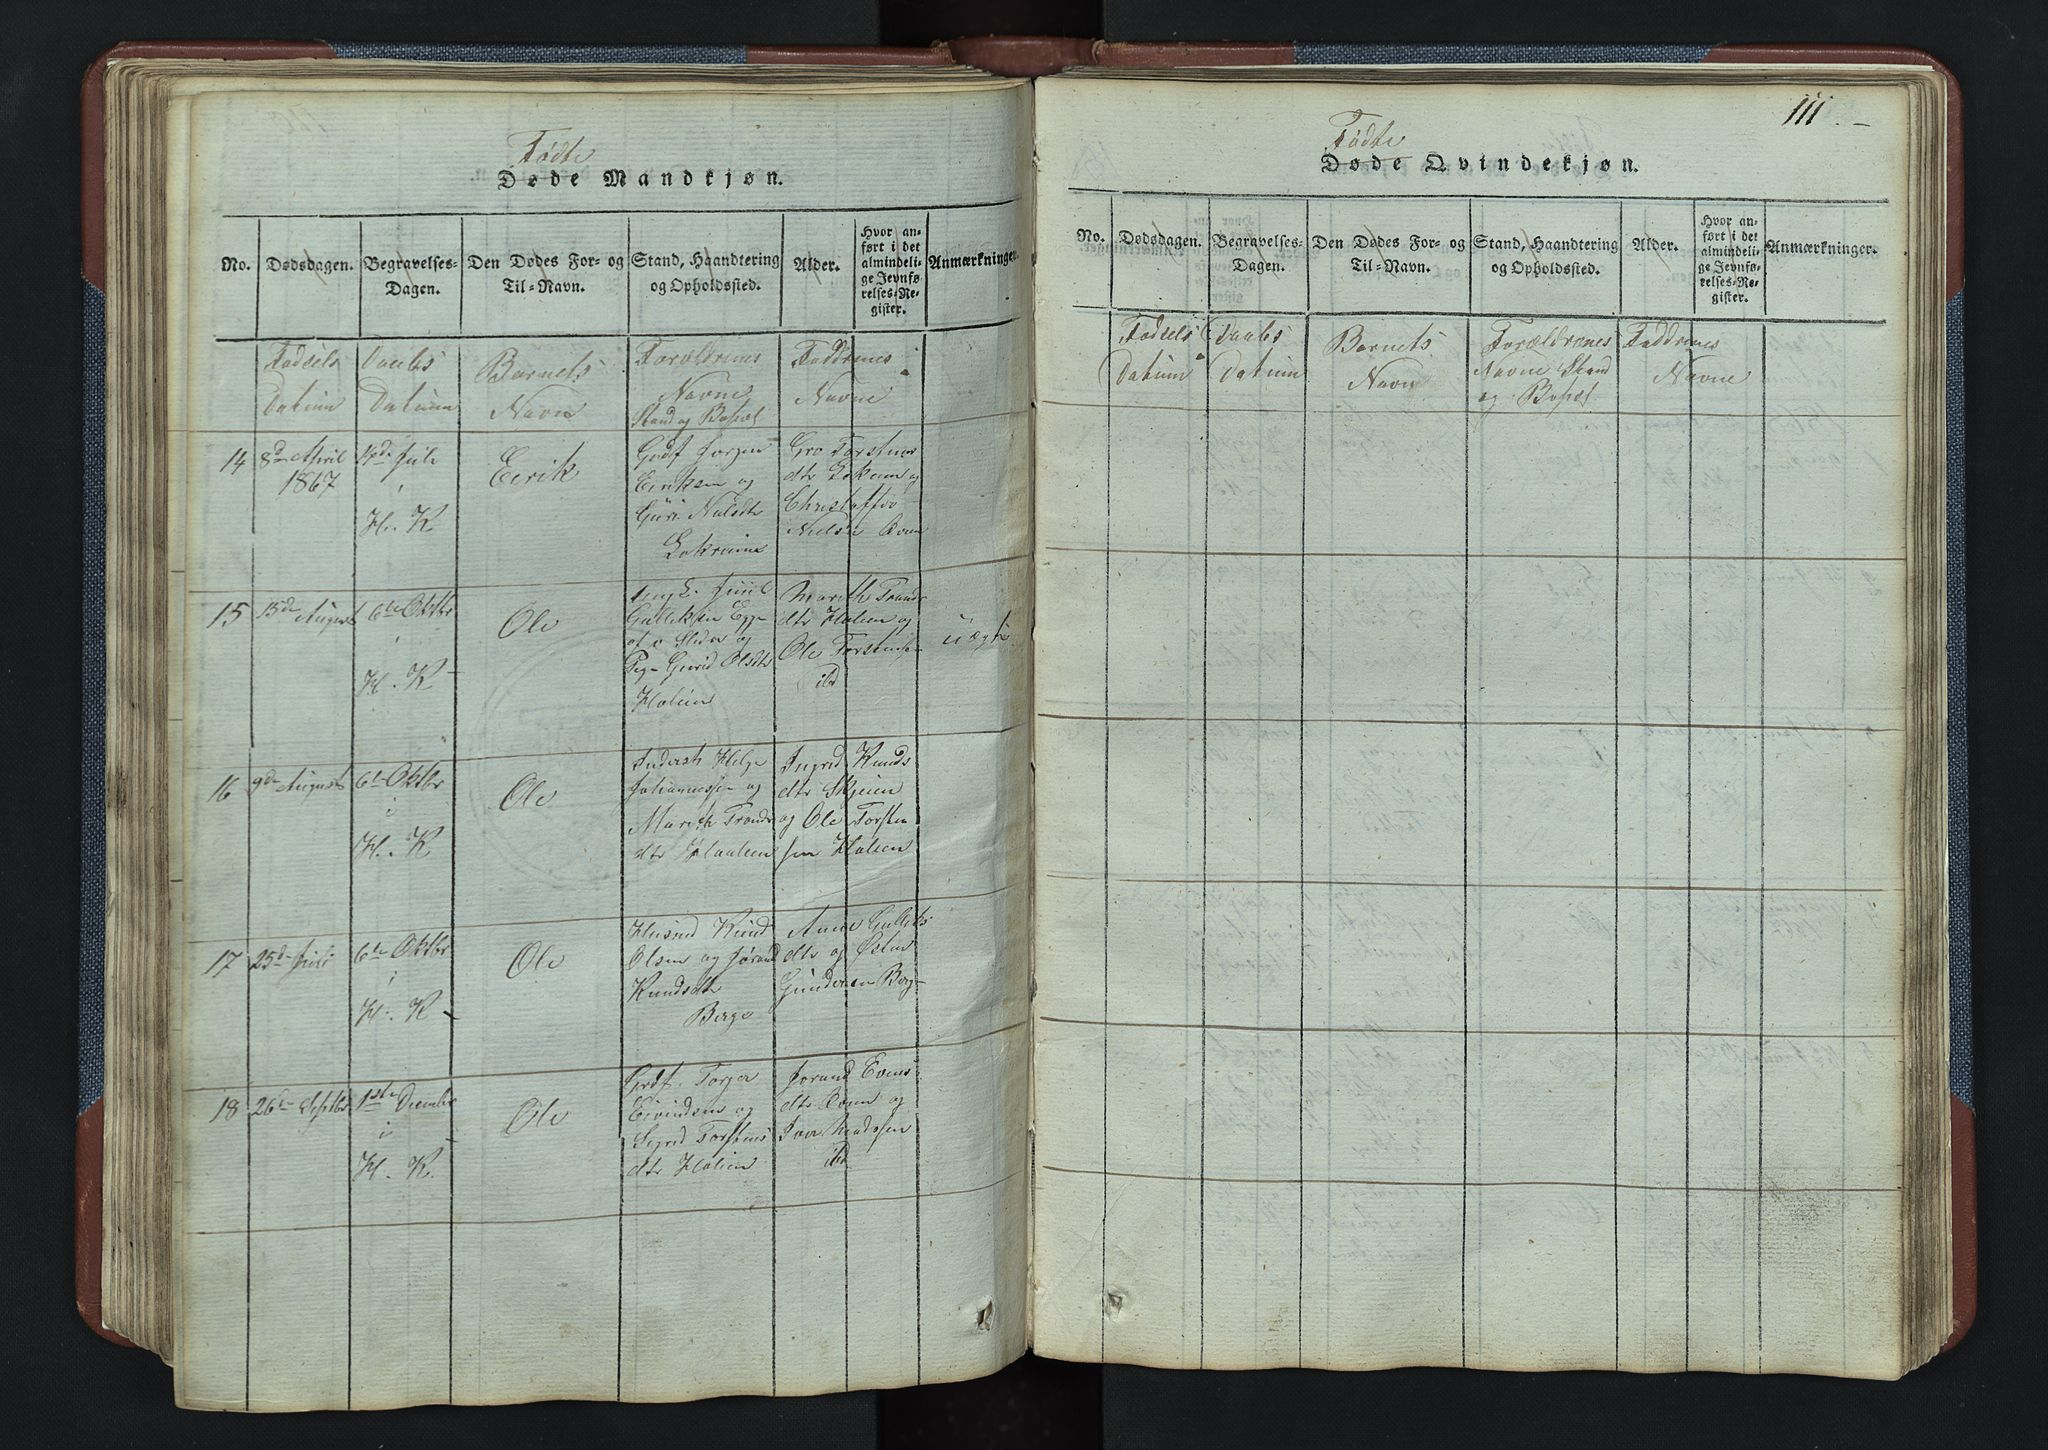 Fødte
Døde Mandkjøn.
No.
Dødsdagen.
Begravelses-
Dagen.
Den Dødes For- og
Til-Navn.
Stand, Haandtering
og Opholdssted.
Alder.
Hvor an-
ført i det
almindeli-
ge Jevnfø-
relses-Re-
gister.
Anmærkninger.
Fødsels
Datum
Daabs
Datum
Barnets
Navn
Forældrenes
Navne
Stand og Bopæl
Faddrenes
Navne
14
8de April
1867
14de Juli
i
H. K
Eirik
Gbdf Jørgen
Eriksen og
Guri Nilsdtr
Gro Torstens
dtr og
Christoffer
Nielsen
15
15de August
6te Oktbr
i
H. K
Ole
Ungk. Juul
Gulleksen
af ø Slidre og
Pige Gurid Olsdtr
Halien
Marith Tronds
dtr Halien og
Ole Torstensen
ibd
uægte
16
9de August
6te Oktbr
i
H. K
Ole
Inderst Helge
Johannessen og
Marith Tronds
dtr Haalien
Ingrid Knuds
dtr Skjeien
og Ole Torsten
sen Halien
17
25de Juli
6te Oktbr
i
H. K
Ole
Husmd Knud
Olsen og Jørand
Knudsdtr
Berge
Anne Gulleks
dtr og Østen
Gundersen Berge
18
26de Septbr
1ste Decembr
i
H. K.
Ole
Gbdf. Torger
Eivindsen og
Sigrid Torstens
dtr Halien
Jørand Evens
dtr og
Iver Knudssen
ibd
111
Fødte
Døde Qvindekjøn.
No.
Dødsdagen.
Begravelses-
Dagen.
Den Dødes For- og
Til-Navn.
Stand, Haandtering
og Opholdssted.
Alder.
Hvor an-
ført i det
almindeli-
ge Jevnfø-
relses-Re-
gister.
Anmærkninger.
Fødsels
Datum
Daabs
Datum
Barnets
Navn
Forældrenes
Navne Stand
og Bopæl
Faddrenes
Navne